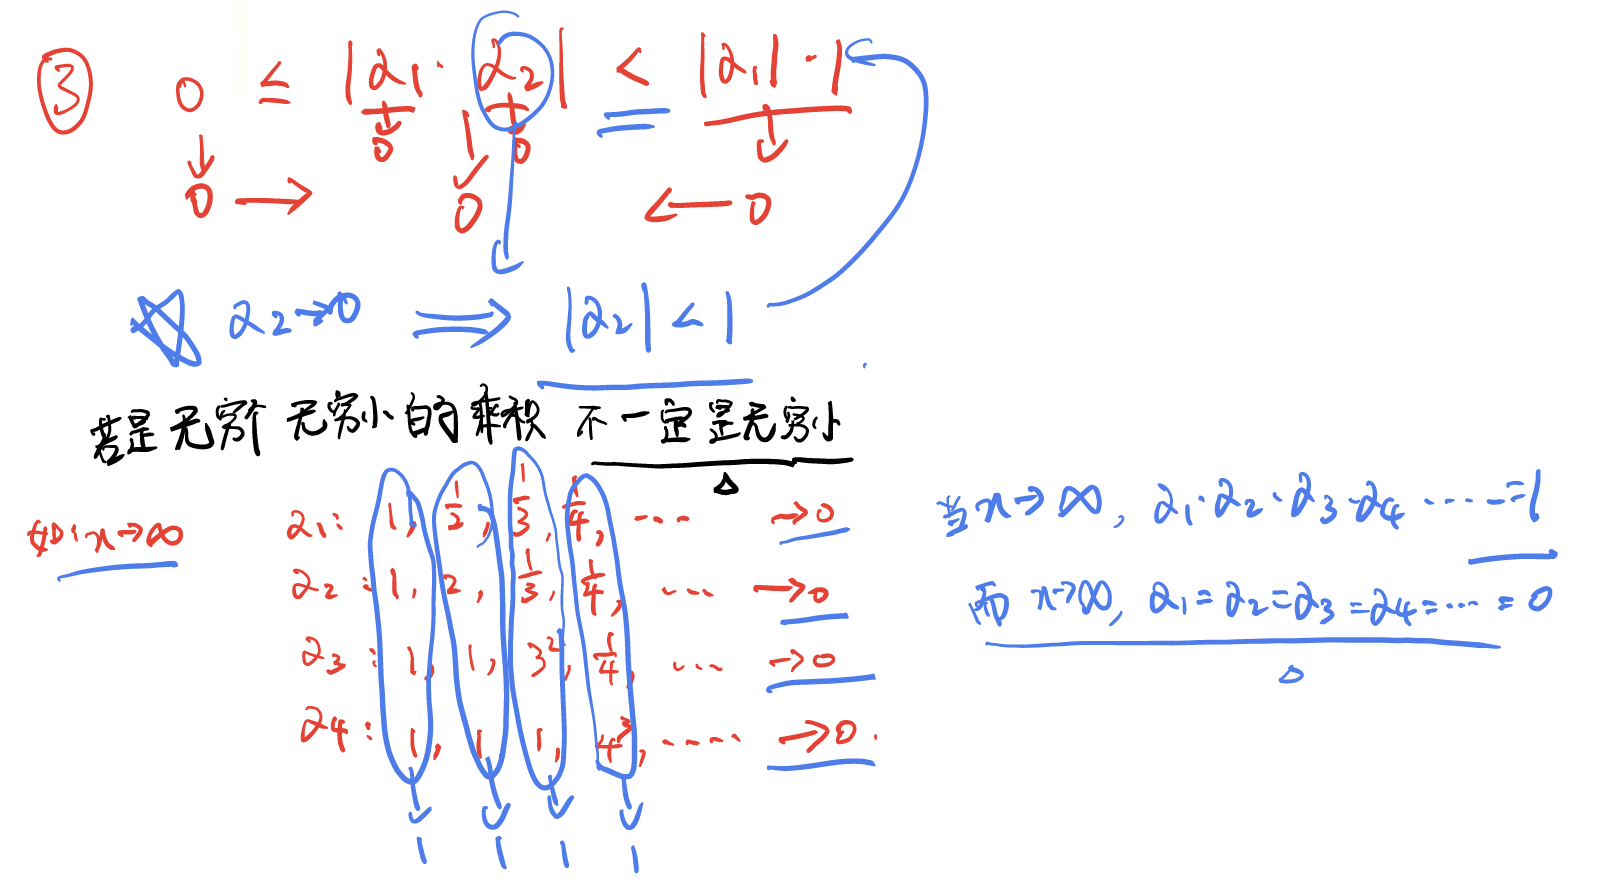 ③ 0 ≤ |α₁·α₂| < |α₁|·1
↓ 0 ↓ 0 ↓
0 → 0 ← 0
☆ α₂→0 ⟹ |α₂| < 1
若是无穷个 无穷小的乘积 不一定是无穷小
△
如:n→∞
α₁: 1, 1/2, 1/3, 1/4, ··· →0
α₂: 1, 2, 1/3, 1/4, ··· →0
α₃: 1, 1, 3², 1/4, ··· →0
α₄: 1, 1, 1, 4³, ····· →0.
↓ ↓ ↓ ↓
1 1 1 1
当n→∞, α₁·α₂·α₃·α₄ ·····=1
而 n→∞, α₁=α₂=α₃=α₄=···=0
△